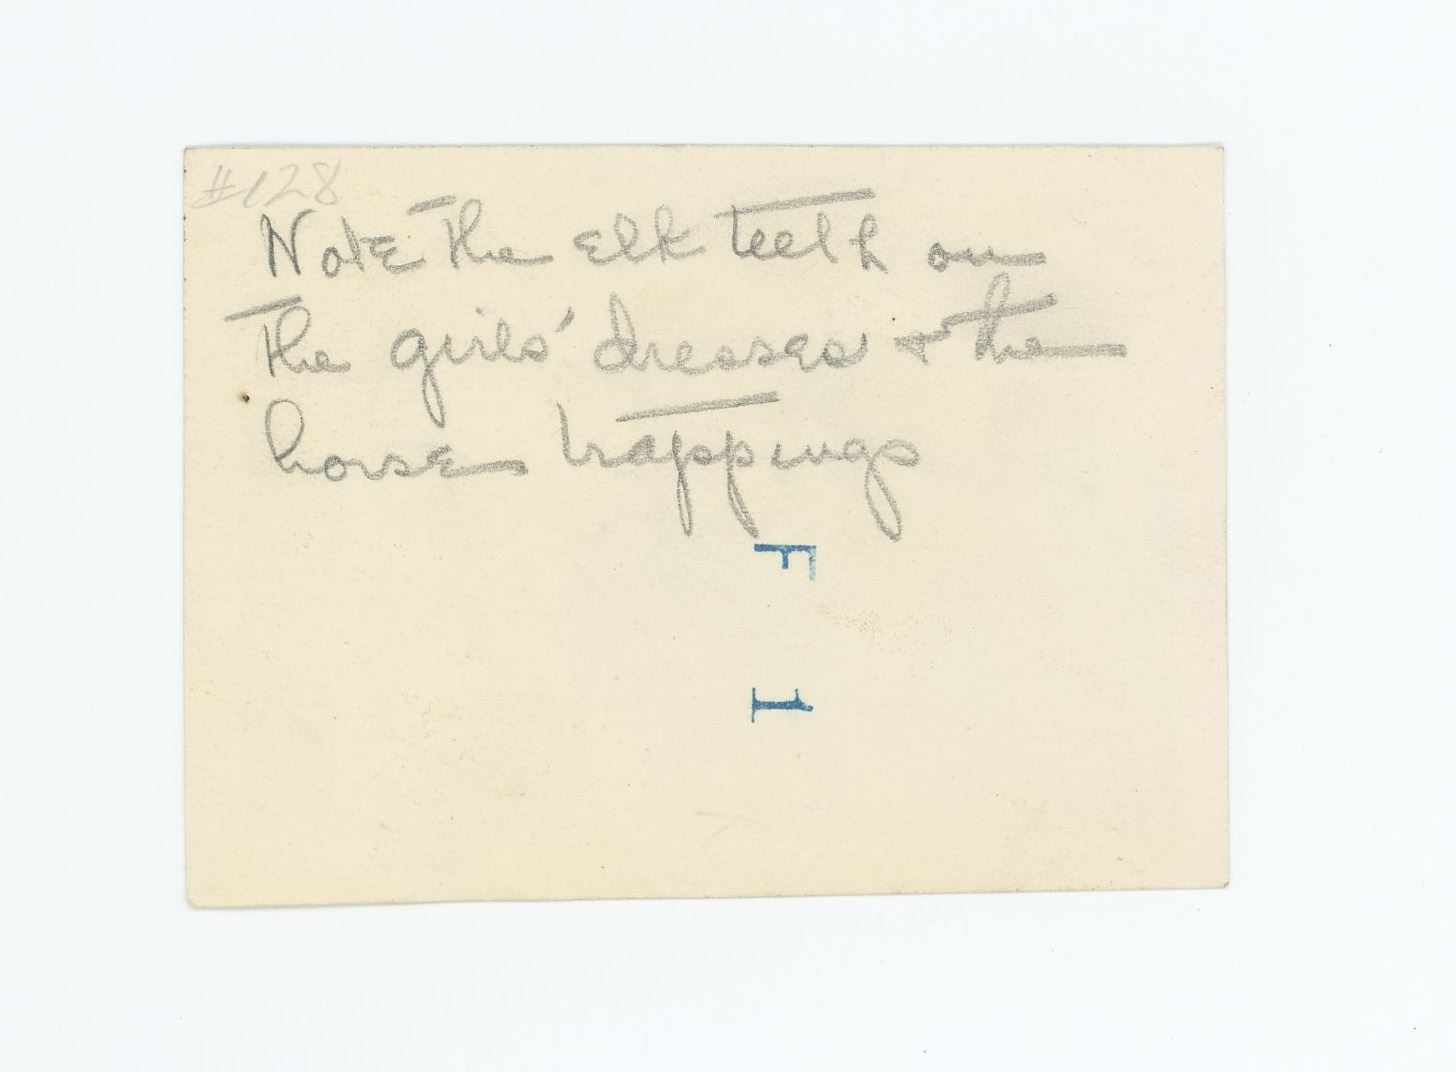 #128
Note the elk teeth on
the girls' dresses & the
horse trappings
F 1